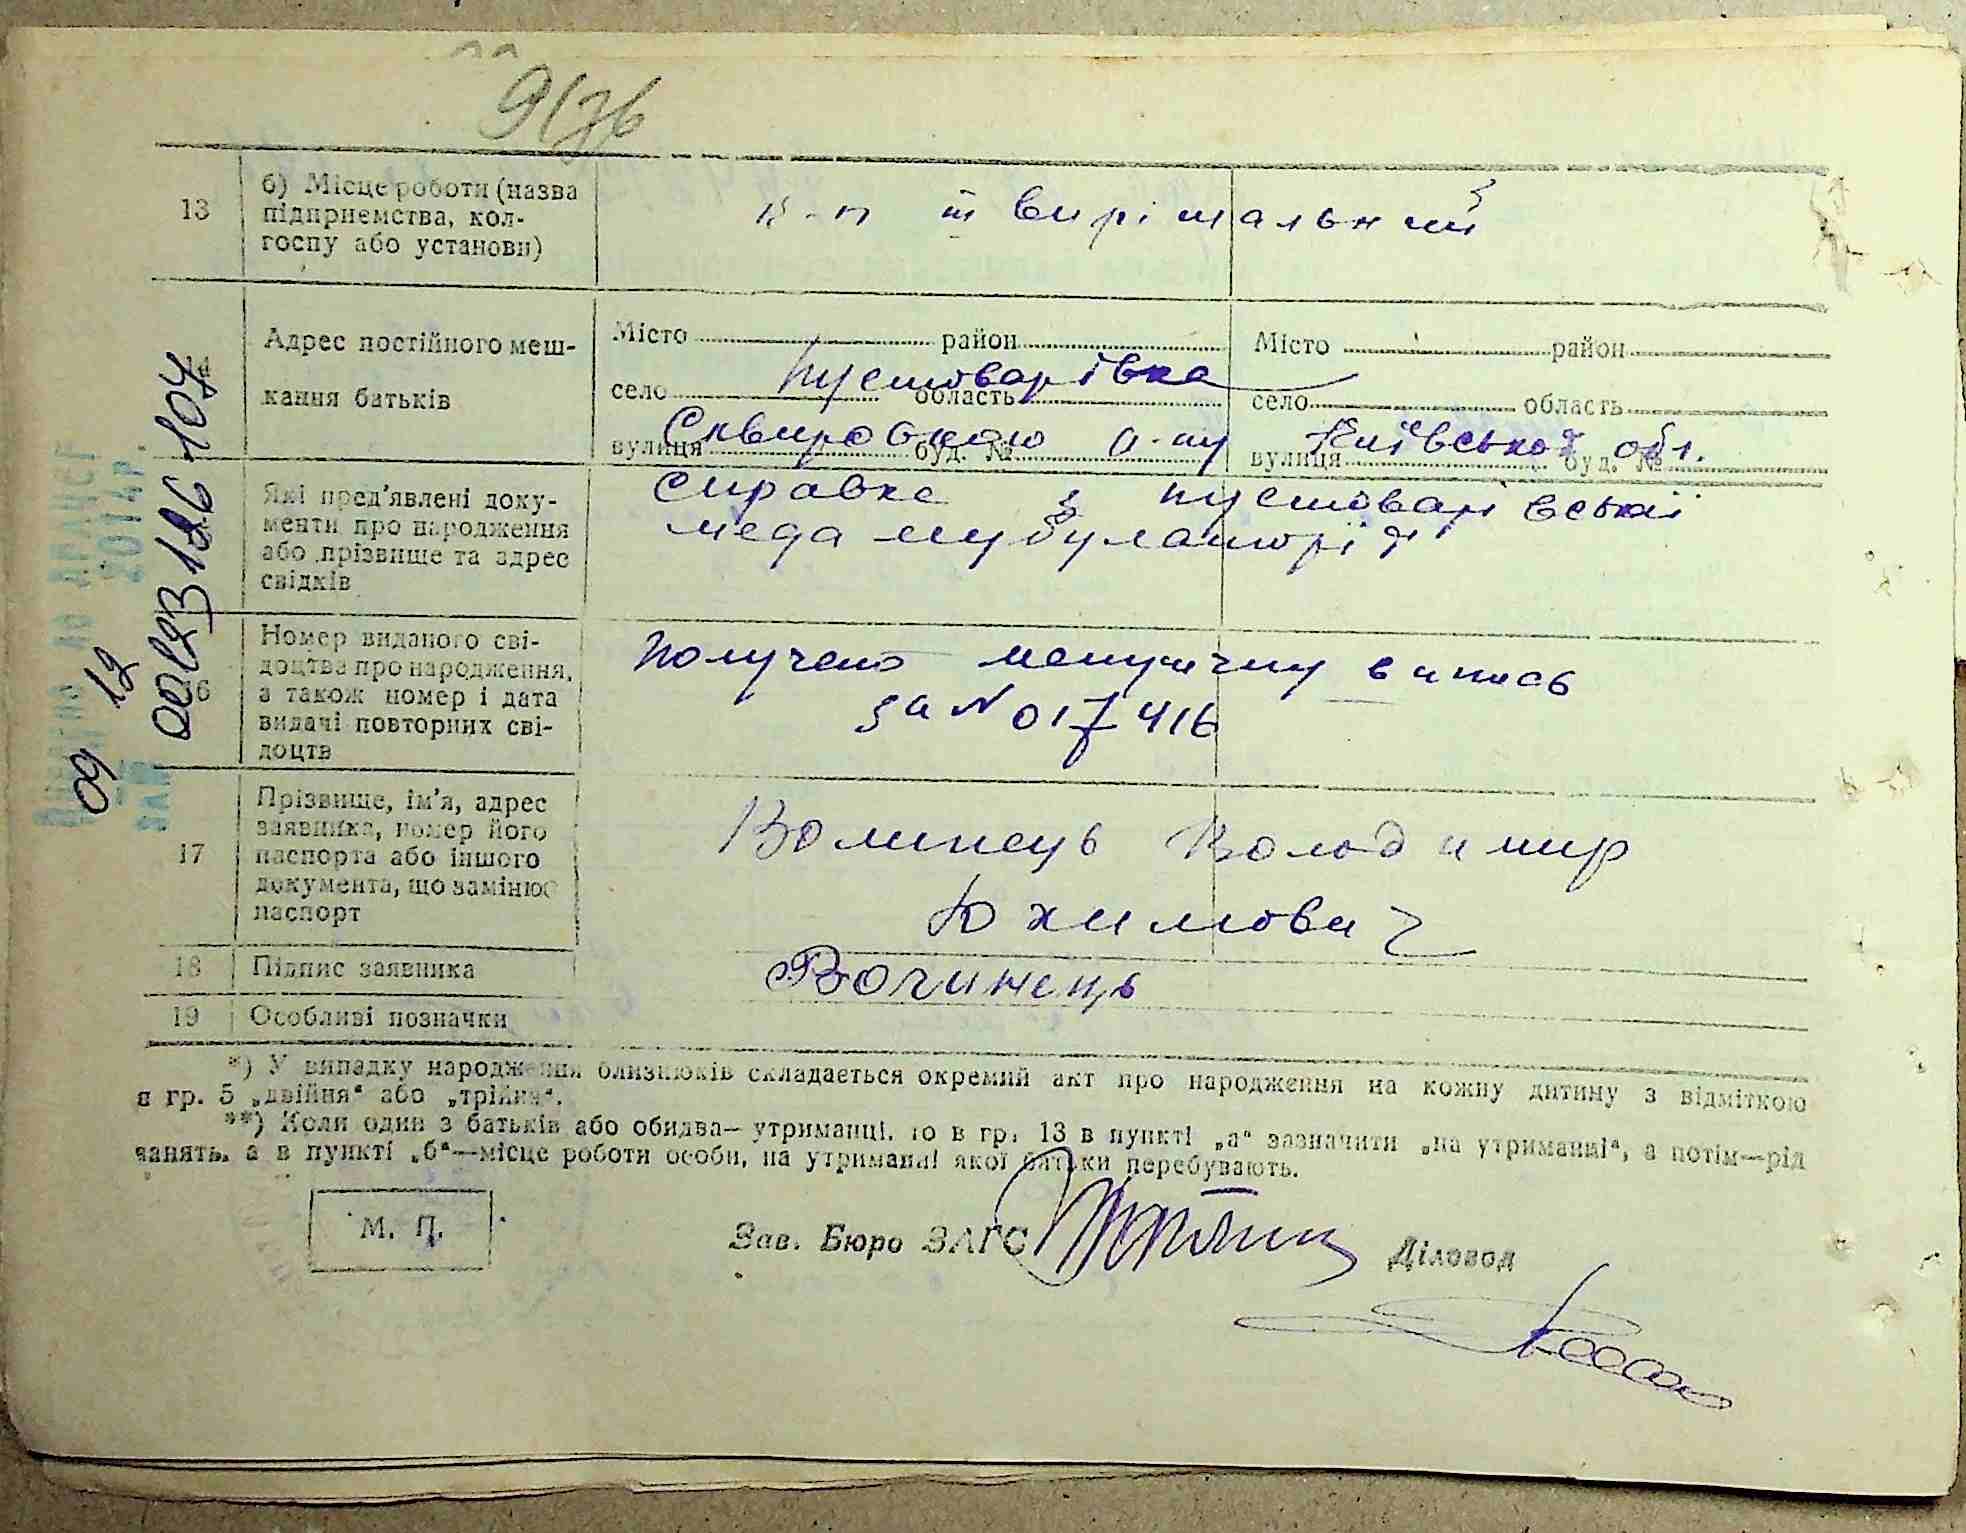 13
б) Місце роботи (назва
підприємства, кол-
госпу або установи)
к-п "Вирішальний"
14
Адрес постійного меш-
кання батьків
Місто район
село Пустоварівка область
вулиця Сквирського р-ну буд. №
Місто район
село область
вулиця Київської обл. буд. №
Які пред'явлені доку-
менти про народження
або прізвище та адрес
свідків
Справка з Пустоварівської
медамбулаторії
16
Номер виданого сві-
доцтва про народження,
а також номер і дата
видачі повторних сві-
доцтв
получено метричну випись
за № 017416
17
Прізвище, ім'я, адрес
заявника, номер його
паспорта або іншого
документа, що замінює
паспорт
Волинець Володимир
Юхимович
18
Підпис заявника
Волинець
19
Особливі позначки
*) У випадку народження близнюків складається окремий акт про народження на кожну дитину з відміткою
в гр. 5 „двійня“ або „трійня“.
**) Коли один з батьків або обидва— утриманці, то в гр. 13 в пункті „а“ зазначити „на утриманні“, а потім—рід
занять, а в пункті „б“—місце роботи особи, на утриманні якої батьки перебувають.
М. П.
Зав. Бюро ЗАГС
Діловод
09 12
00123186 107
2014р.